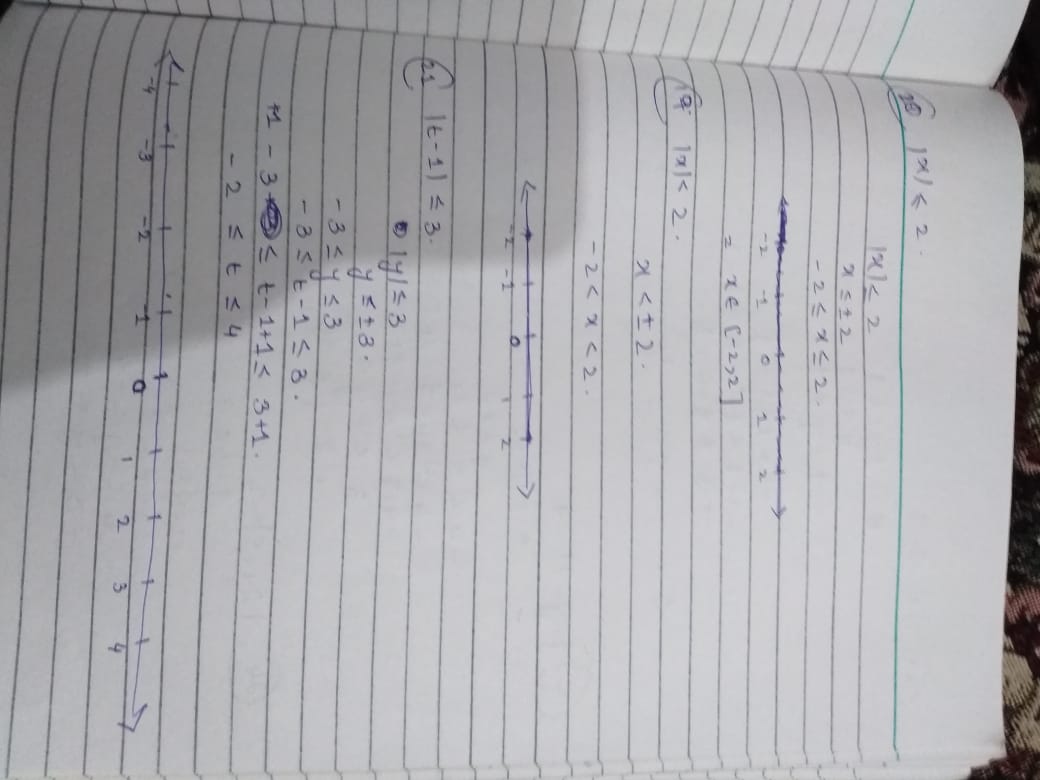 20 |x| ≤ 2.
|x| ≤ 2
x ≤ ± 2
-2 ≤ x ≤ 2.
-2 -1 0 1 2
= x ∈ [-2,2]
19. |x| < 2.
x < ± 2.
-2 < x < 2.
-2 -1 0 1 2
21 |t-1| ≤ 3.
|y| ≤ 3
y ≤ ± 3.
-3 ≤ y ≤ 3
-3 ≤ t-1 ≤ 3.
+1 - 3 ≤ t-1+1 ≤ 3+1.
-2 ≤ t ≤ 4
-4 -3 -2 -1 0 1 2 3 4